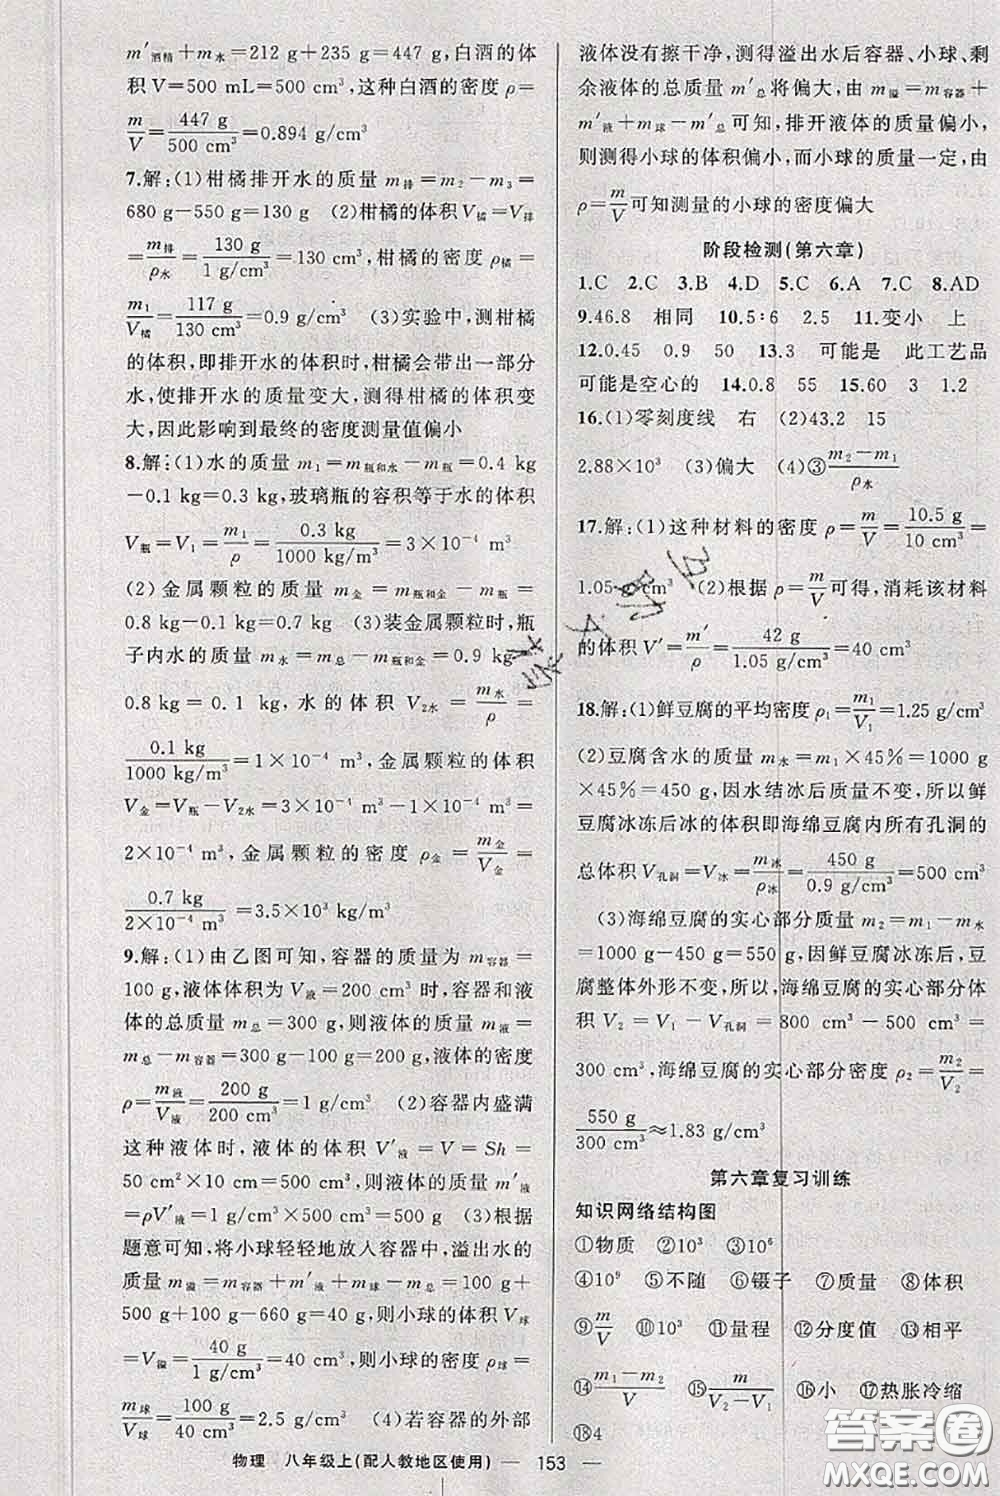 m′酒精+m水=212 g+235 g=447 g,白酒的体
积 V=500 mL=500 cm³,这种白酒的密度 ρ=
m/V=447 g/500 cm³=0.894 g/cm³
7.解:(1)柑橘排开水的质量 m排=m₂-m₃=
680 g-550 g=130 g (2)柑橘的体积 V橘=V排
=m排/ρ水=130 g/1 g/cm³=130 cm³,柑橘的密度 ρ橘=
m₁/V橘=117 g/130 cm³=0.9 g/cm³ (3)实验中,测柑橘
的体积,即排开水的体积时,柑橘会带出一部分
水,使排开水的质量变大,测得柑橘的体积变
大,因此影响到最终的密度测量值偏小
8.解:(1)水的质量 m₁=m瓶和水-m瓶=0.4 kg
-0.1 kg=0.3 kg,玻璃瓶的容积等于水的体积
V瓶=V₁=m₁/ρ=0.3 kg/1000 kg/m³=3×10⁻⁴ m³
(2)金属颗粒的质量 m金=m瓶和金-m瓶=
0.8 kg-0.1 kg=0.7 kg (3)装金属颗粒时,瓶
子内水的质量 m水=m总-m瓶和金=0.9 kg-
0.8 kg=0.1 kg,水的体积 V₂水=m水/ρ=
0.1 kg/1000 kg/m³=1×10⁻⁴ m³,金属颗粒的体积
V金=V瓶-V₂水=3×10⁻⁴ m³-1×10⁻⁴ m³=
2×10⁻⁴ m³,金属颗粒的密度 ρ金=m金/V金=
0.7 kg/2×10⁻⁴ m³=3.5×10³ kg/m³
9.解:(1)由乙图可知,容器的质量为 m容器=
100 g,液体体积为 V液=200 cm³ 时,容器和液
体的总质量 m总=300 g,则液体的质量 m液=
m总-m容器=300 g-100 g=200 g,液体的密度
ρ=m液/V液=200 g/200 cm³=1 g/cm³ (2)容器内盛满
这种液体时,液体的体积 V′液=V=Sh=
50 cm²×10 cm=500 cm³,液体的质量 m′液
=ρV′液=1 g/cm³×500 cm³=500 g (3)根据
题意可知,将小球轻轻地放入容器中,溢出水的
质量 m溢=m容器+m′液+m球-m总=100 g+
500 g+100 g-660 g=40 g,则小球的体积 V球
=V溢=40 g/1 g/cm³=40 cm³,则小球的密度 ρ球=
m球/V球=100 g/40 cm³=2.5 g/cm³ (4)若容器的外部
液体没有擦干净,测得溢出水后容器、小球、剩
余液体的总质量 m′总将偏大,由 m溢=m容器+
m′液+m球-m′总可知,排开液体的质量偏小,
则测得小球的体积偏小,而小球的质量一定,由
ρ=m/V可知测量的小球的密度偏大
阶段检测(第六章)
1.C 2.C 3.B 4.D 5.C 6.A 7.C 8.AD
9.46.8 相同 10.5:6 2.5 11.变小 上
12.0.45 0.9 50 13.3 可能是 此工艺品
可能是空心的 14.0.8 55 15.60 3 1.2
16.(1)零刻度线 右 (2)43.2 15
2.88×10³ (3)偏大 (4)③m₂-m₁/ρ水
17.解:(1)这种材料的密度 ρ=m/V=10.5 g/10 cm³=
1.05 g/cm³ (2)根据 ρ=m/V可得,消耗该材料
的体积 V′=m′/ρ=42 g/1.05 g/cm³=40 cm³
18.解:(1)鲜豆腐的平均密度 ρ₁=m₁/V₁=1.25 g/cm³
(2)豆腐含水的质量 m水=m₁×45%=1000 g
×45%=450 g,因水结冰后质量不变,所以鲜
豆腐冰冻后冰的体积即海绵豆腐内所有孔洞的
总体积 V孔洞=V冰=m冰/ρ冰=450 g/0.9 g/cm³=500 cm³
(3)海绵豆腐的实心部分质量 m₂=m₁-m水=
1000 g-450 g=550 g,因鲜豆腐冰冻后,豆
腐整体外形不变,所以,海绵豆腐的实心部分体
积 V₂=V₁-V孔洞=800 cm³-500 cm³=
300 cm³,海绵豆腐的实心部分密度 ρ₂=m₂/V₂=
550 g/300 cm³≈1.83 g/cm³
第六章复习训练
知识网络结构图
①物质 ②10³ ③10⁶
④10⁹ ⑤不随 ⑥镊子 ⑦质量 ⑧体积
⑨m/V ⑩10³ ⑪量程 ⑫分度值 ⑬相平
⑭m₁-m₂/V ⑮m/V₂-V₁ ⑯小 ⑰热胀冷缩
⑱4
物理 八年级上(配人教地区使用) — 153 —
答案圈
MXQE.COM